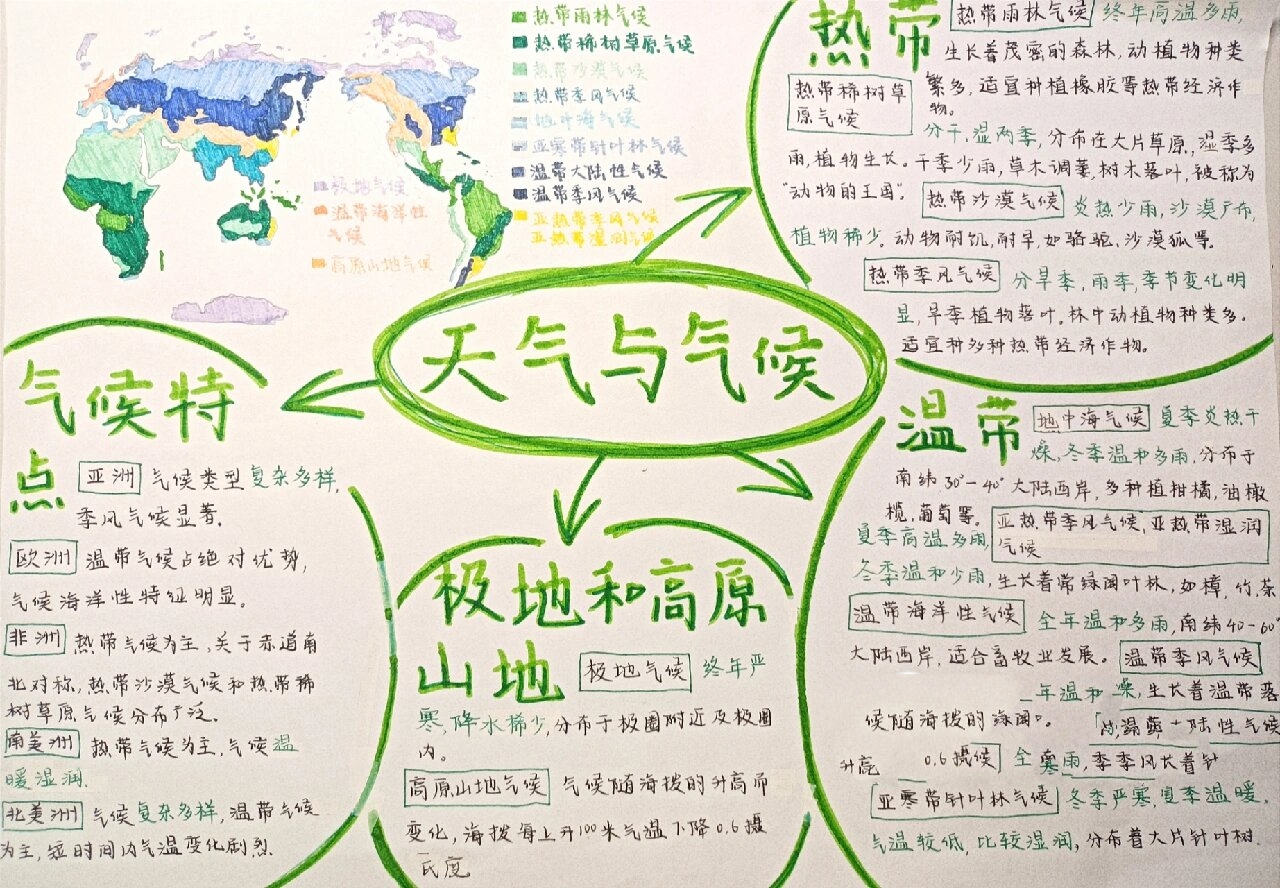 热带雨林气候
热带稀树草原气候
热带沙漠气候
热带季风气候
地中海气候
亚寒带针叶林气候
温带大陆性气候
温带季风气候
亚热带季风气候
亚热带湿润气候
极地气候
温带海洋性
气候
高原山地气候
天气与气候
热带
热带雨林气候 终年高温多雨,
生长着茂密的森林,动植物种类
繁多,适宜种植橡胶等热带经济作
物。
热带稀树草
原气候
分干,湿两季,分布在大片草原,湿季多
雨,植物生长。干季少雨,草木凋萎,树木落叶,被称为
"动物的王国"。
热带沙漠气候 炎热少雨,沙漠广布,
植物稀少。动物耐饥,耐旱,如骆驼、沙漠狐等。
热带季风气候 分旱季,雨季,季节变化明
显,旱季植物落叶。林中动植物种类多。
适宜种多种热带经济作物。
气候特
点
亚洲 气候类型复杂多样,
季风气候显著。
欧洲 温带气候占绝对优势,
气候海洋性特征明显。
非洲 热带气候为主,关于赤道南
北对称,热带沙漠气候和热带稀
树草原气候分布广泛。
南美洲 热带气候为主,气候温
暖湿润.
北美洲 气候复杂多样,温带气候
为主,短时间内气温变化剧烈.
极地和高原
山地
极地气候 终年严
寒,降水稀少,分布于极圈附近及极圈
内。
高原山地气候 气候随海拔的升高而
变化,海拔每上升100米气温下降0.6摄
氏度
温带
地中海气候 夏季炎热干
燥,冬季温和多雨,分布于
南纬30°-40°大陆西岸,多种植柑橘,油橄
榄,葡萄等。
亚热带季风气候,亚热带湿润
气候
夏季高温多雨,
冬季温和少雨,生长着常绿阔叶林,如樟,竹,茶
温带海洋性气候 全年温和多雨,南纬40-60°
大陆西岸,适合畜牧业发展。
温带季风气候
年温和 燥,生长着温带落
候随海拔的绿阔
陆性气候
升高 0.6摄候 全 寒雨,季季风长着针
亚寒带针叶林气候 冬季严寒,夏季温暖.
气温较低,比较湿润,分布着大片针叶树.